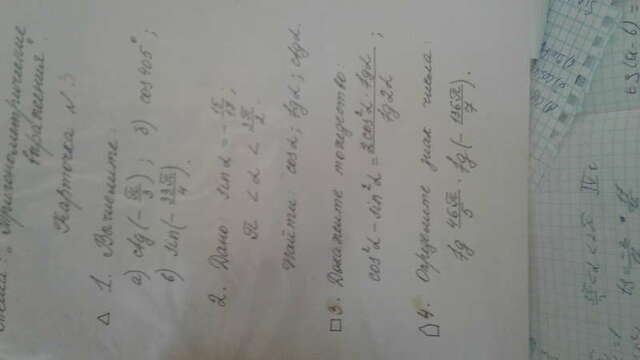 Тема: "Тригонометрические
выражения".
Карточка №3
1. Вычислите:
а) ctg(-π/3); б) cos405°;
в) sin(-33π/4).
2. Дано: sinα = -15/17;
π < α < 3π/2.
Найти: cosα; tgα; ctgα.
3. Докажите тождество:
cos²α - sin²α = 2cos²α · tgα / tg2α;
4. Определите знак числа:
tg 46π/5 · tg(-136π/7).
< α < 2π IV